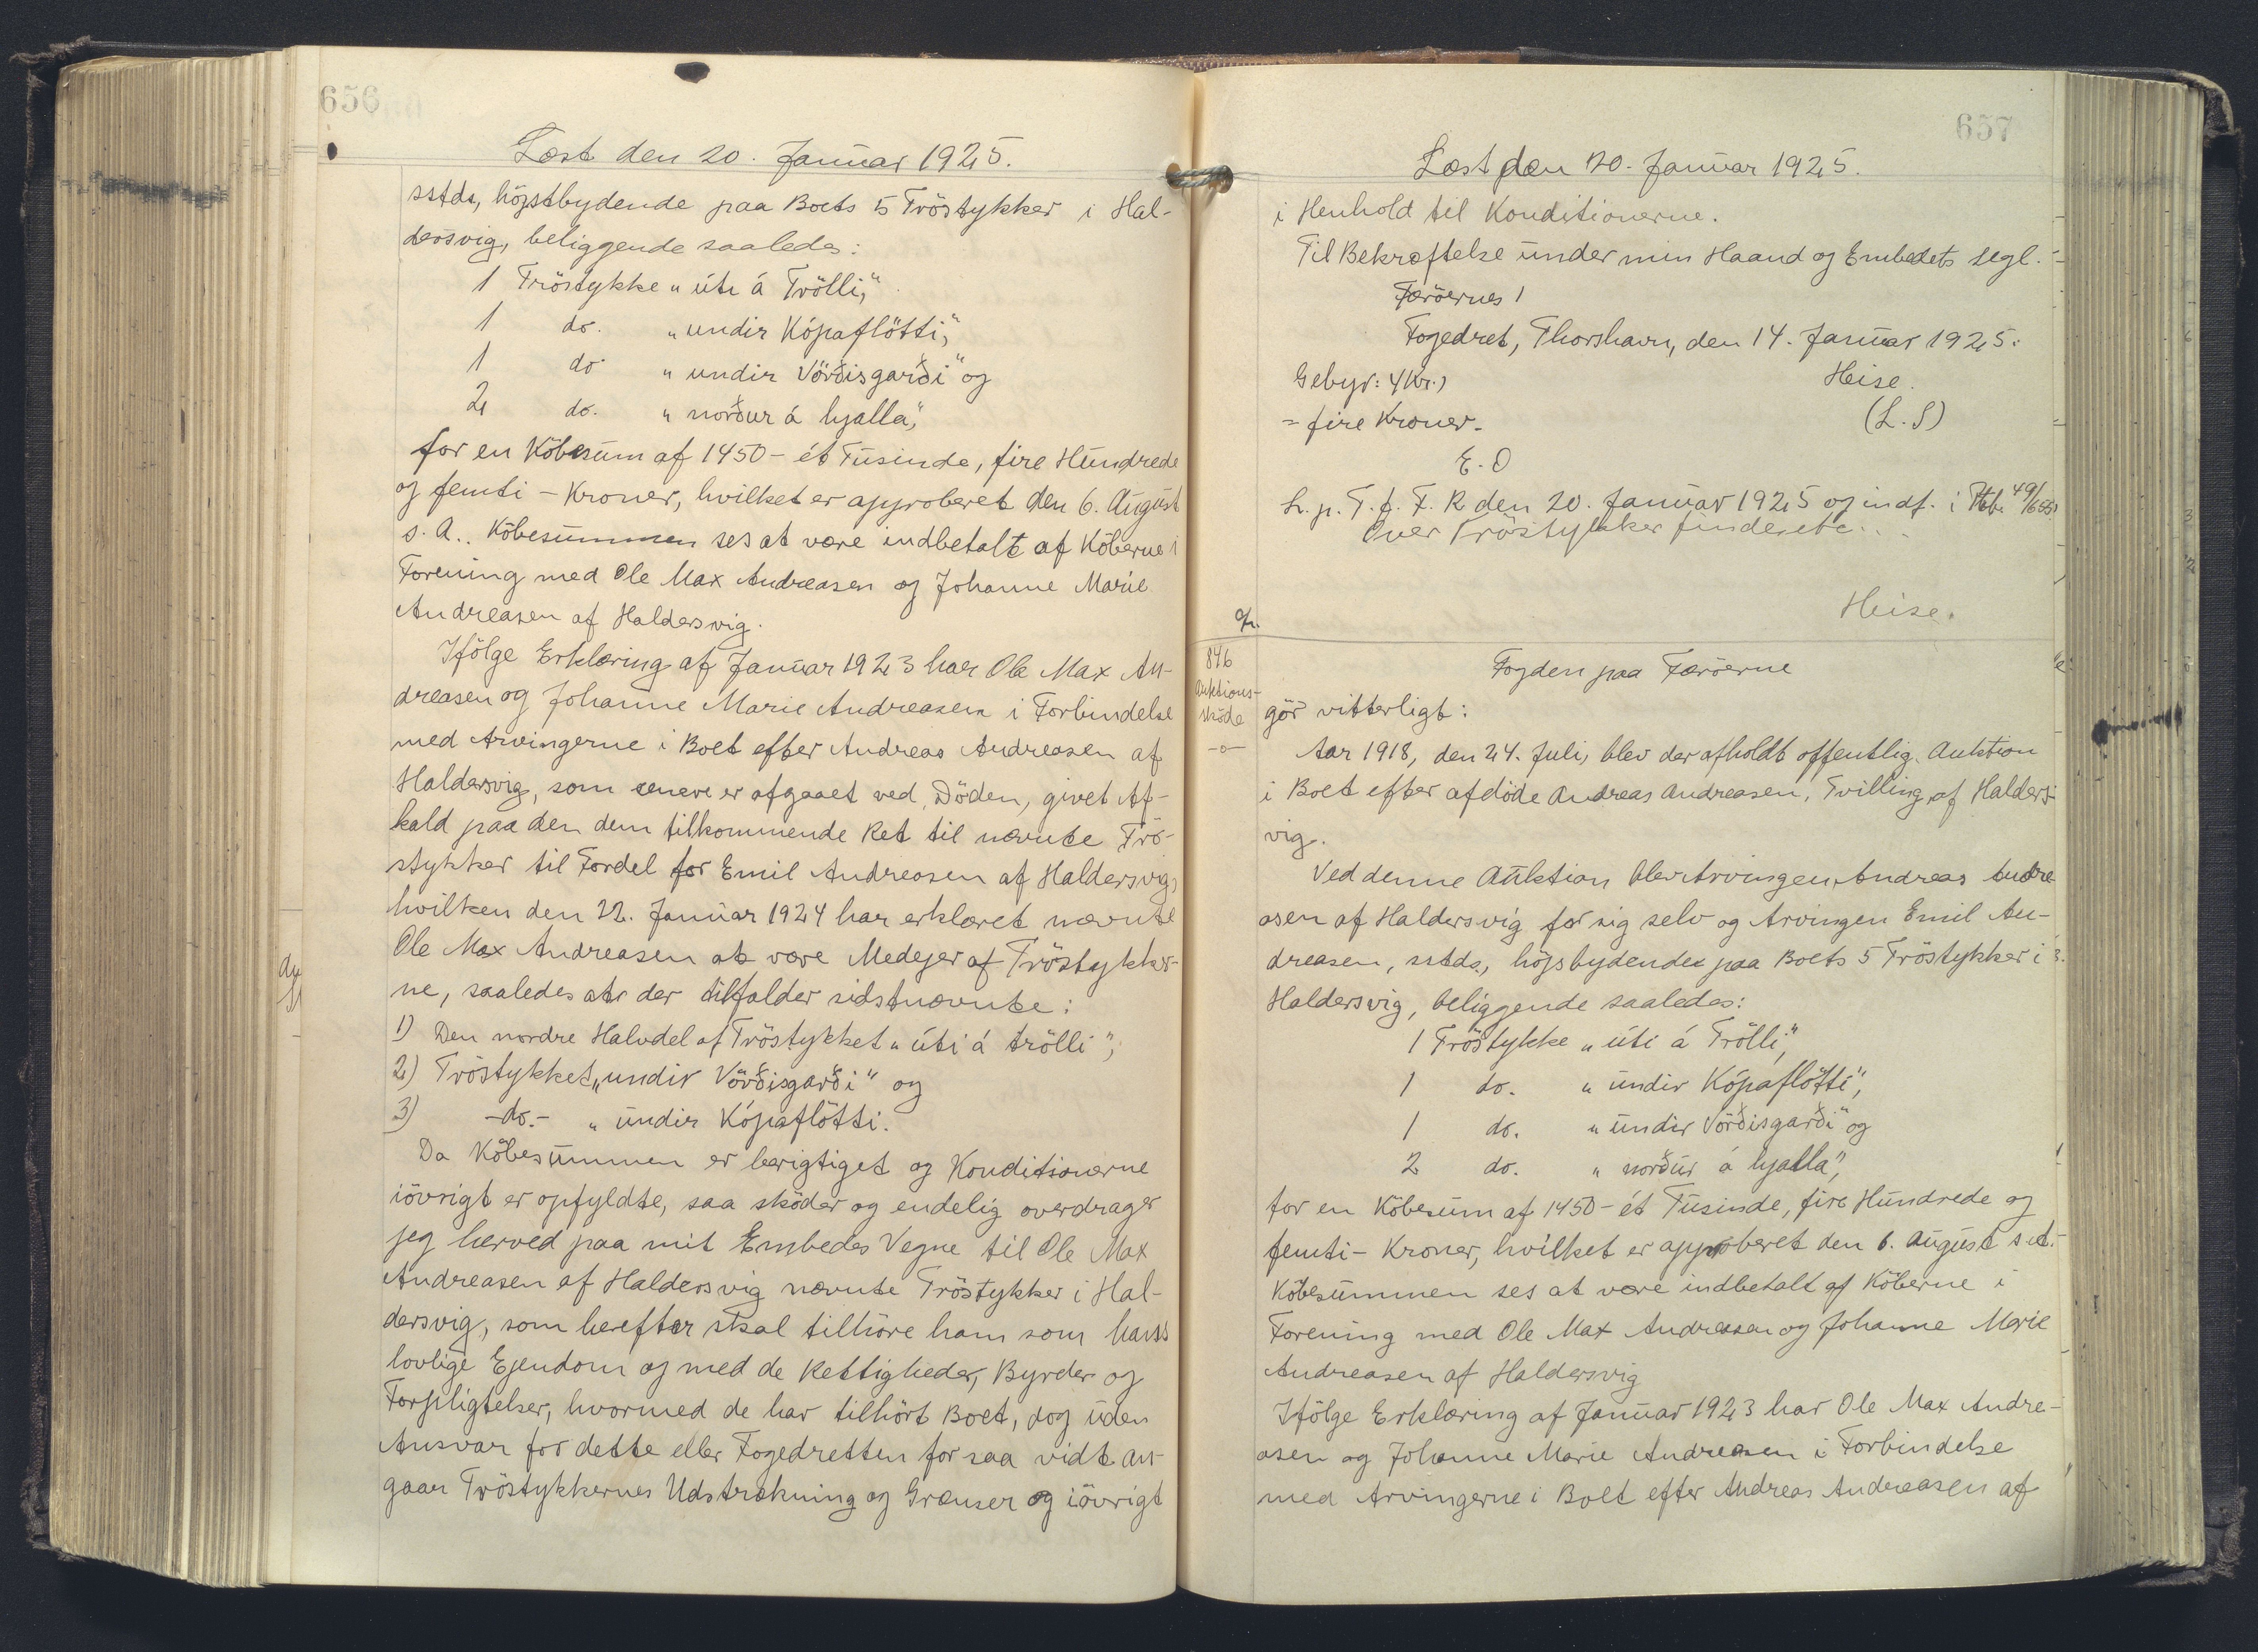 656
Læst den 20. Januar 1925.
sstds, höjstbydende paa Boets 5 Tröstykker i Hal-
dersvig, beliggende saaledes:
1 Tröstykke „úti á Trölli“,
1 do. „undir Kópaflötti“,
1 do „undir Vörðisgarði“ og
2 do. „norður á hjalla“,
for en Köbesum af 1450 - ét Tusinde, fire Hundrede
og femti - Kroner, hvilket er approberet den 6. August
s. A.. Köbesummen ses at være indbetalt af Köberne i
Forening med Ole Max Andreasen og Johanne Marie
Andreasen af Haldersvig.
Ifölge Erklæring af Januar 1923 har Ole Max An-
dreasen og Johanne Marie Andreasen i Forbindelse
med Arvingerne i Boet efter Andreas Andreasen af
Haldersvig, som senere er afgaaet ved Döden, givet Af-
kald paa den dem tilkommende Ret til nævnte Trö-
stykker til Fordel for Emil Andreasen af Haldersvig,
hvilken den 22. Januar 1924 har erklæret nævnte
Ole Max Andreasen at være Medejer af Tröstykker-
ne, saaledes at der tilfalder sidstnævnte:
1) Den nordre Halvdel af Tröstykket „úti á trölli“,
2) Tröstykket „undir Vörðisgarði“ og
3) -do.- „undir Kópaflötti.
Da Köbesummen er berigtiget og Konditionerne
iövrigt er opfyldte, saa sköder og endelig overdrager
jeg herved paa mit Embedes Vegne til Ole Max
Andreasen af Haldersvig nævnte Tröstykker i Hal-
dersvig, som herefter skal tilhöre ham som hans
lovlige Ejendom og med de Rettigheder, Byrder og
Forpligtelser, hvormed de har tilhört Boet, dog uden
Ansvar for dette eller Fogedretten for saa vidt an-
gaar Tröstykkernes Udstrækning og Grænser og iövrigt
657
Læst den 20. Januar 1925.
i Henhold til Konditionerne.
Til Bekræftelse under min Haand og Embedets Segl.
Færöernes
Fogedret, Thorshavn, den 14. Januar 1925.
Gebyr: 4 Kr.
Heise.
= fire Kroner.
(L.S)
E.O
L. p. T. f. F. R den 20. Januar 1925 og indf. i Ptb. 49/655
Over Tröstykker findes etc...
Heise.
846
Auktions-
sköde
-o-
Fogden paa Færöerne
gör vitterligt:
Aar 1918, den 24. Juli, blev der afholdt offentlig Auktion
i Boet efter afdöde Andreas Andreasen, Tvilling, af Halders-
vig.
Ved denne Auktion blev Arvingen Andreas Andre-
asen af Haldersvig for sig selv og Arvingen Emil An-
dreasen, sstds., höjsbydende paa Boets 5 Tröstykker i
Haldersvig, beliggende saaledes:
1 Tröstykke „úti á Trölli“,
1 do. „undir Kópaflötti“,
1 do. „undir Vörðisgarði“ og
2 do. „norður á hjalla“,
for en Köbesum af 1450 - ét Tusinde, fire Hundrede og
femti - Kroner, hvilket er approberet den 6. August s.A.
Köbesummen ses at være indbetalt af Köberne i
Forening med Ole Max Andreasen og Johanne Marie
Andreasen af Haldersvig
Ifölge Erklæring af Januar 1923 har Ole Max Andre-
asen og Johanne Marie Andreasen i Forbindelse
med Arvingerne i Boet efter Andreas Andreasen af